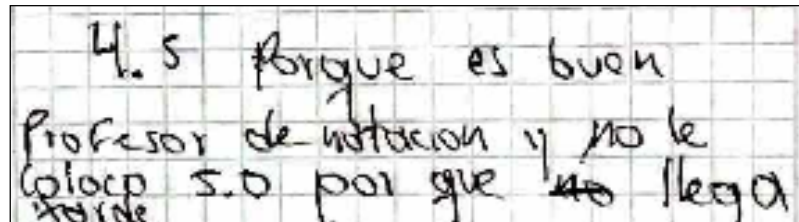 4.5 Porque es buen
Profesor de natacion y no le
Coloco 5.0 por que no llega
tarde